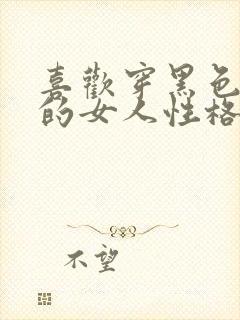 喜歡穿黑色
的女人性格
不望